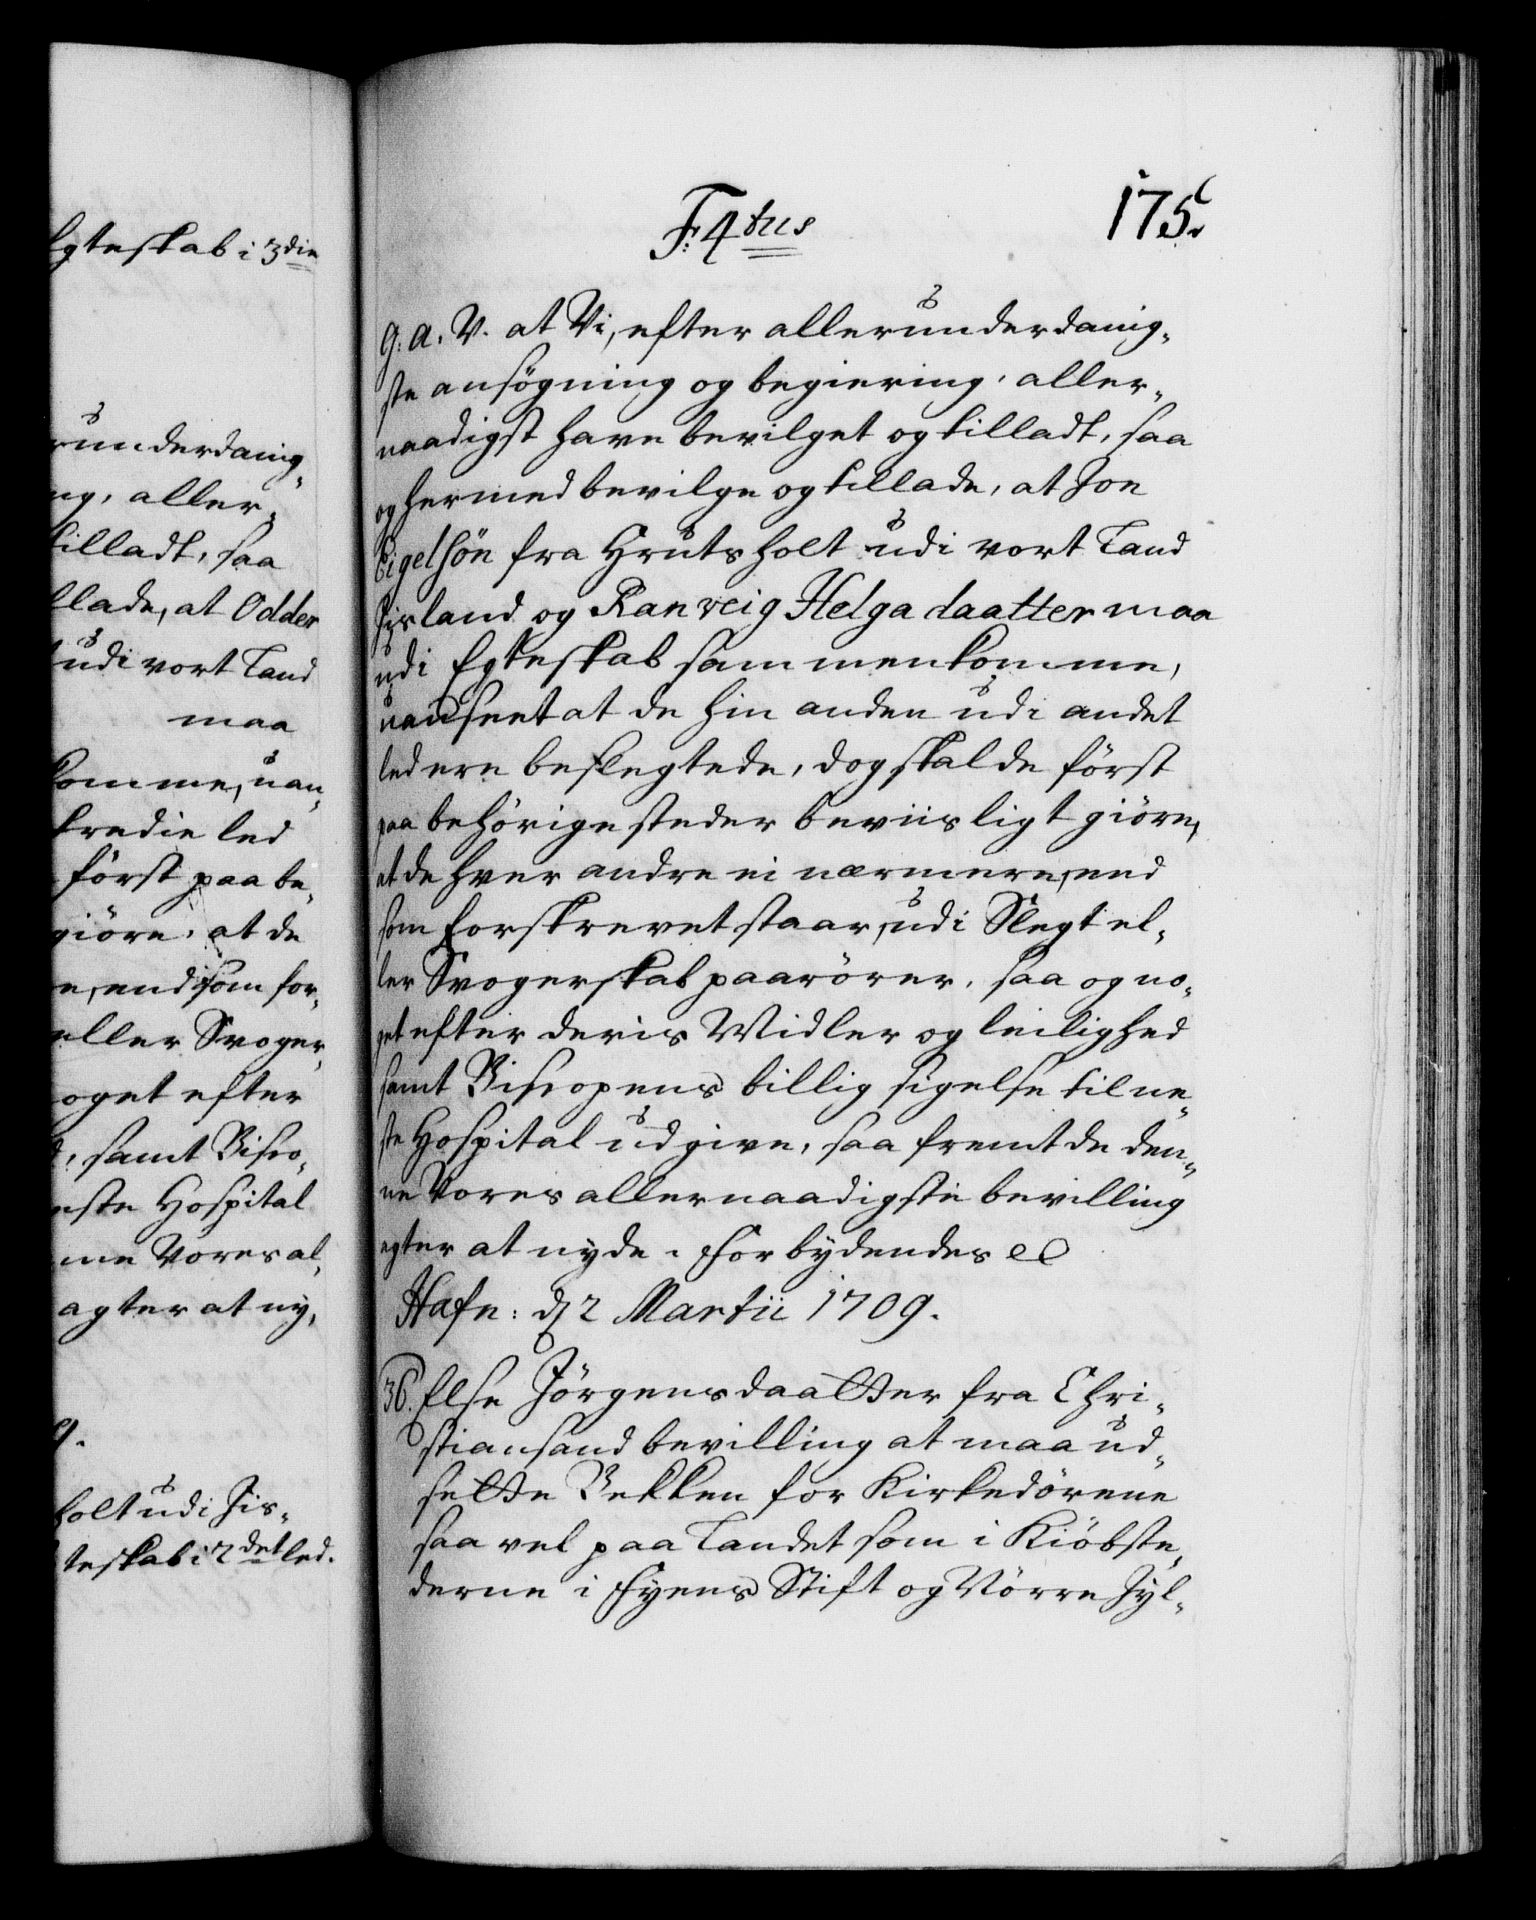 Egteskab i 3die
runderdanig¬
ng, aller¬
tilladt, saa
llade, at Odder
udi vort Land
maa
komme, uan¬
tredie led
först paa be¬
giöre, at de
e, end som for¬
eller Svoger¬
oget efter
samt Bisco¬
neste Hospital
nne Vores al¬
agter at ny¬
9.
holt udi Jis¬
teskab i 2det led.
F: 4tus
175.
G. A. V. at Vi, efter allerunderdanig¬
ste ansögning og begiering, aller¬
naadigst have bevilget og tilladt, saa
og hermed bevilge og tillade, at Jon
Eigelsön fra Hrutsholt udi vort Land
Jisland og Ranveig Helgadaatter maa
udi Egteskab sammenkomme,
uanseet at de hin anden udi andet
led ere beslegtede, dog skal de först
paa behörige steder beviisligt giöre,
at de hver andre ei nærmere, end
som forskrevet staar, udi Slegt el¬
ler Svogerskab paarörer, saa og no¬
get efter deris Midler og leilighed
samt Biscopens billig sigelse til ne¬
ste Hospital udgive, saa fremt de den¬
ne Vores allernaadigste bevilling
agter at nyde. Forbydendes etc
Hafn: d 2 Martii 1709.
36. Else Jörgensdaatter fra Chri¬
stiansand bevilling at maa ud¬
sette Bekken for Kirkedörene
saa vel paa Landet som i Kiöbste¬
derne i Fyens Stift og Nörre Jyl¬